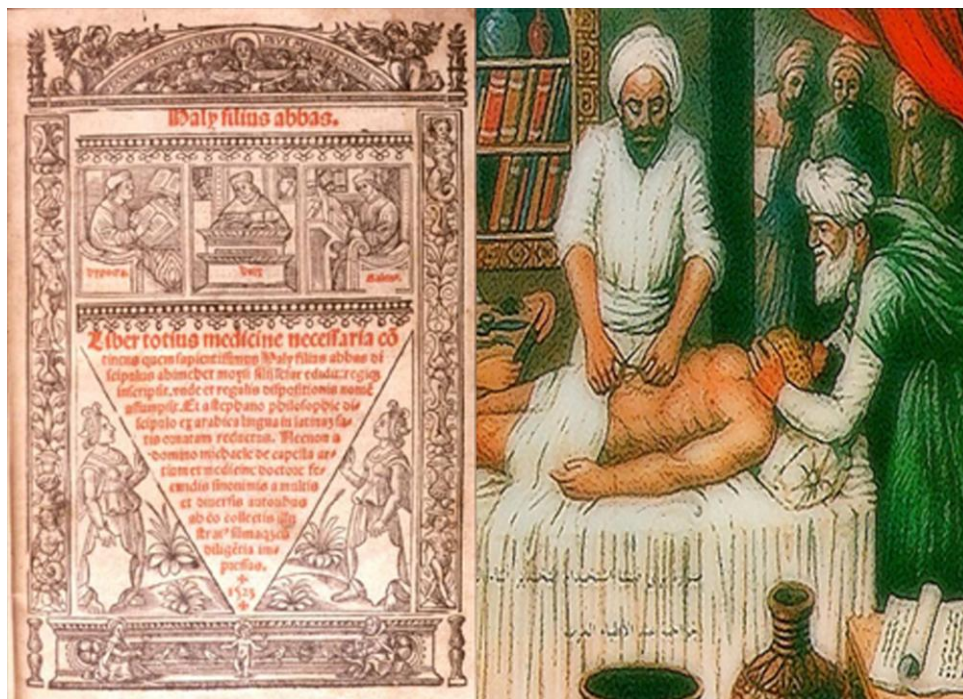 Haly filius abbas.
Haly
Galenus.
Liber totius medicine necessaria cō
tinens quem sapientissimus Haly filius abbas di
scipulus abimeher moysi filij seiar edidit: regiqz
inscripsit. vnde et regalis dispositionis nomē
assumpsit. Et a stephano philosophie di
scipulo ex arabica lingua in latinaz sa
tis ornatam reductus. Necnon a
domino michaele de capella ar
tium et medicine doctore fe
cundis sinonimis a multis
et diuersis autoribus
ab eo collectis illu
stratus summaqz cū
diligētia im
pressus.
1523
صورة تولي
جراحية عند الأطباء العرب